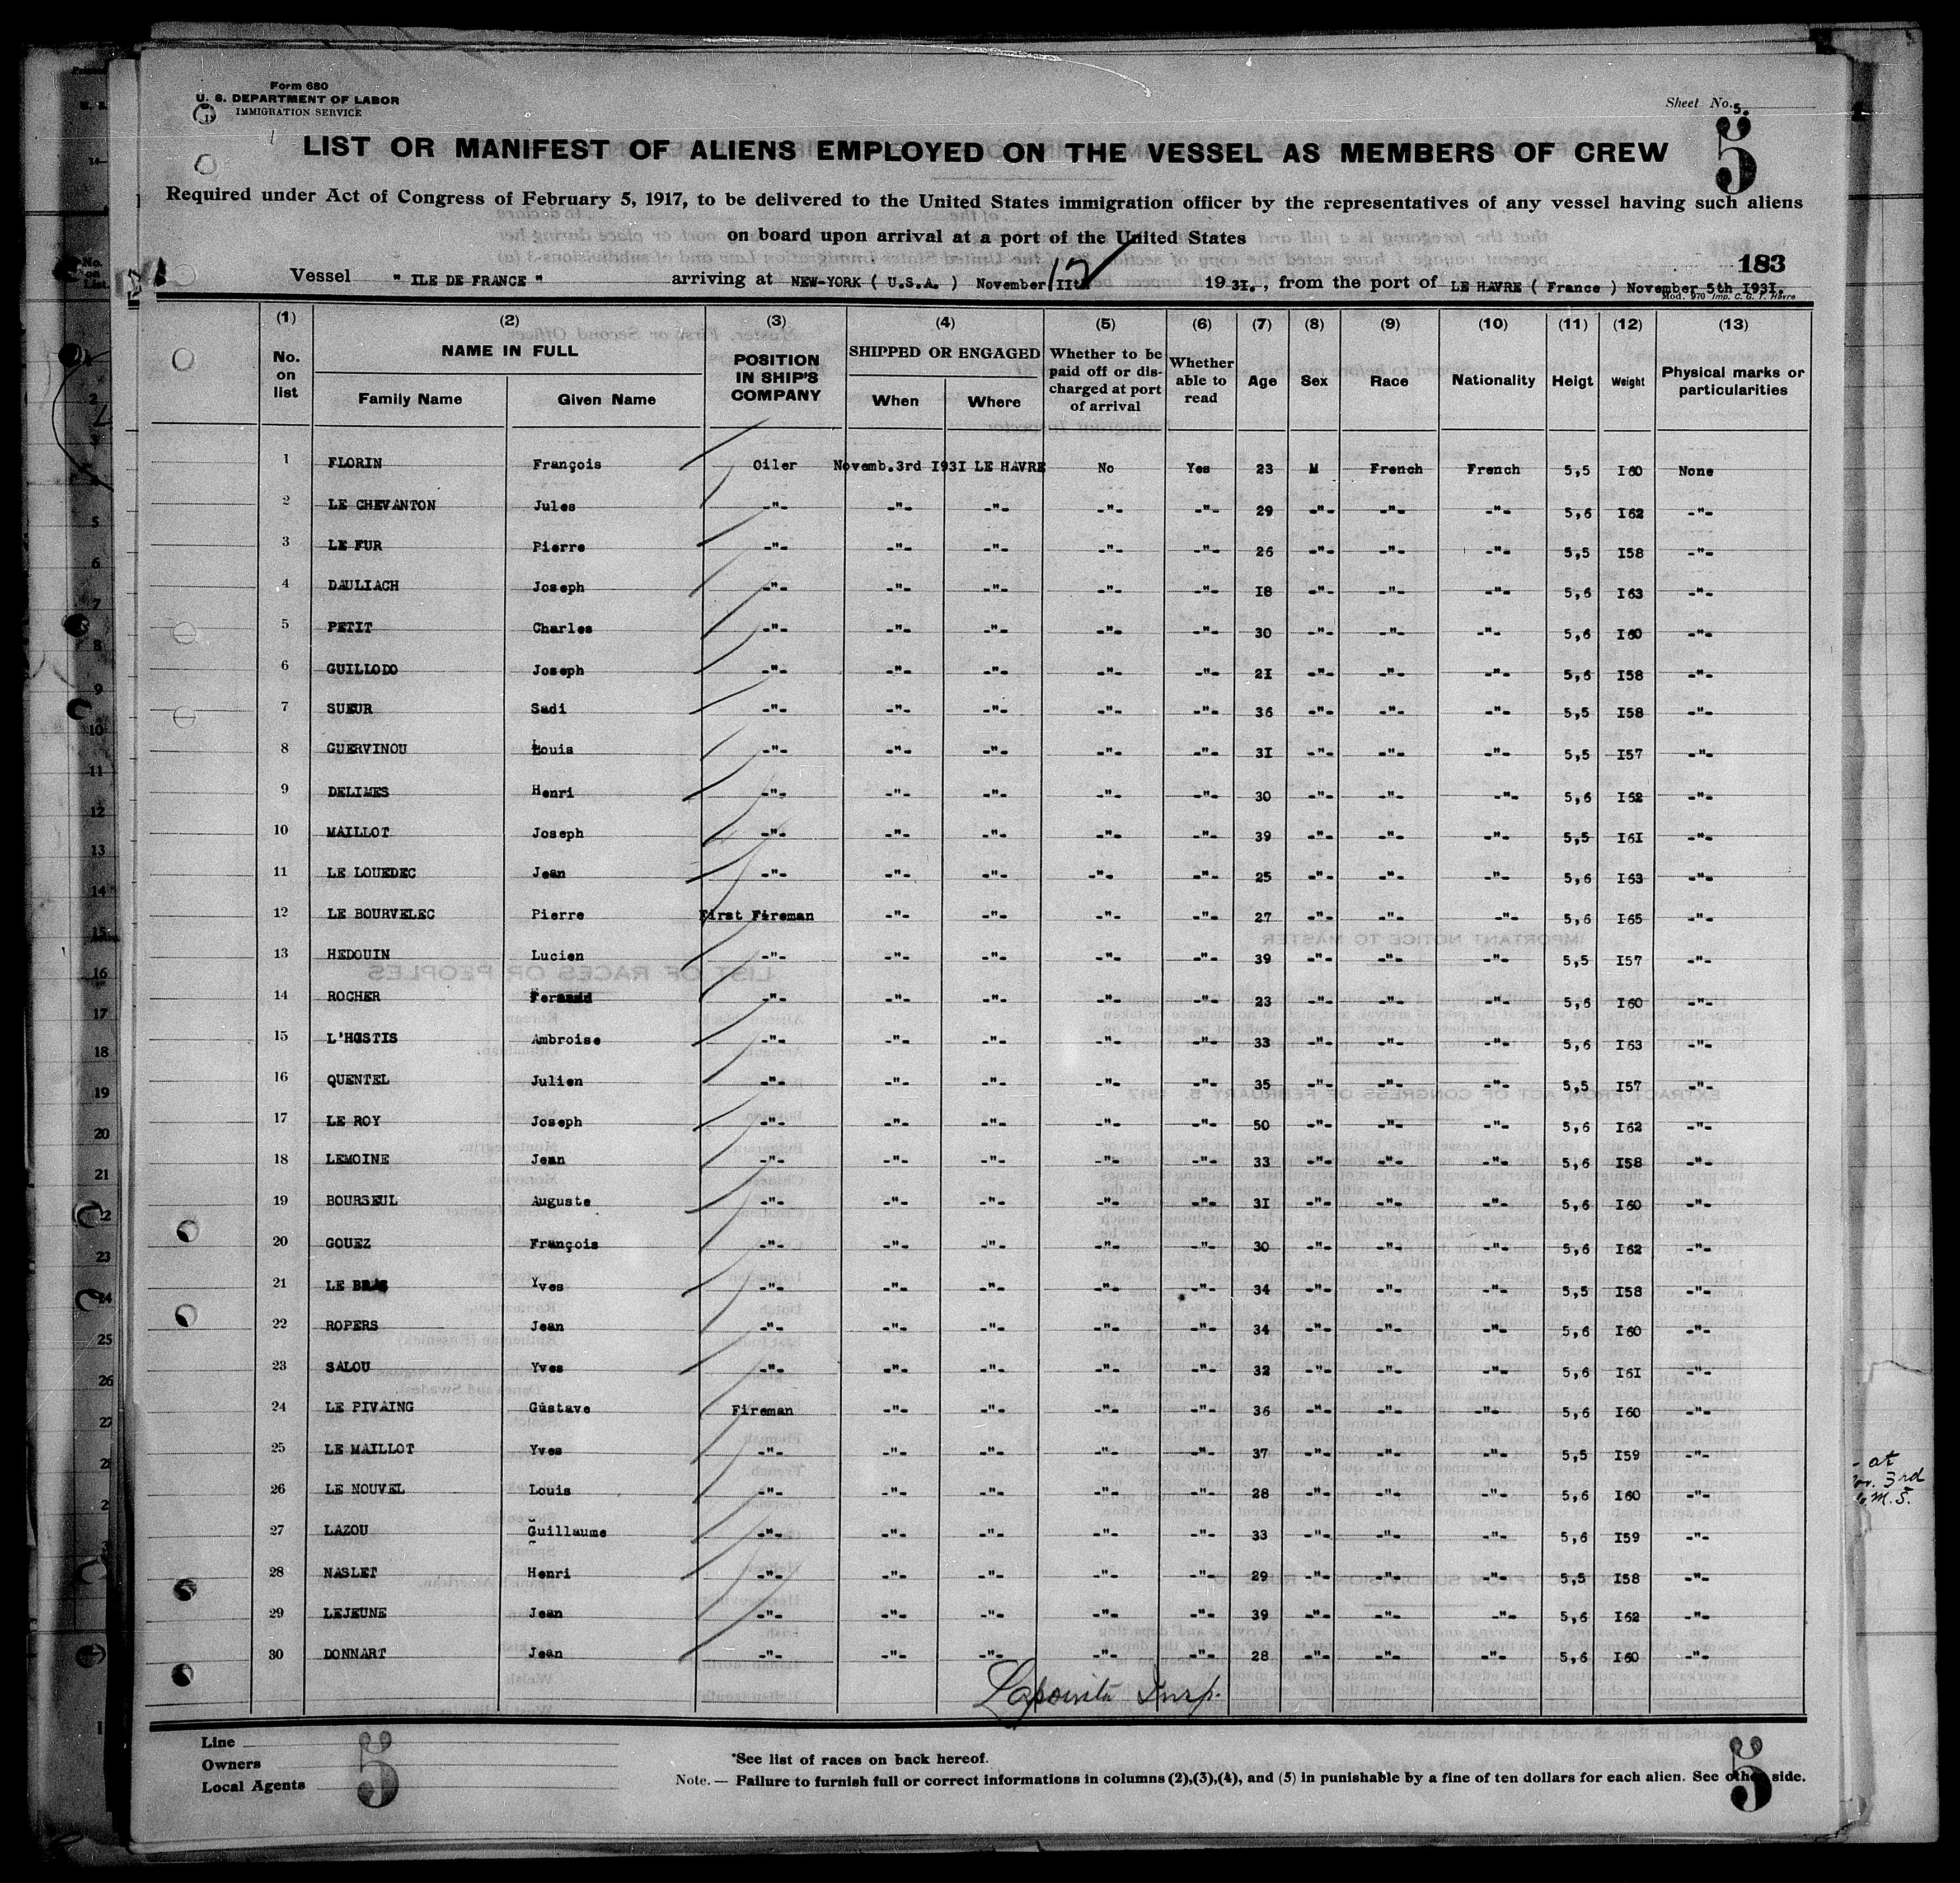 Form 680
U. S. DEPARTMENT OF LABOR
IMMIGRATION SERVICE
Sheet No. 5.
5
LIST OR MANIFEST OF ALIENS EMPLOYED ON THE VESSEL AS MEMBERS OF CREW
Required under Act of Congress of February 5, 1917, to be delivered to the United States immigration officer by the representatives of any vessel having such aliens
on board upon arrival at a port of the United States
183
Vessel " ILE DE FRANCE " arriving at NEW-YORK ( U.S.A. ) November IIth 12 19 3I. , from the port of LE HAVRE ( France ) November 5th I93I.
Mod. 970 Imp. C. G. T. Havre
(1) (2) (3) (4) (5) (6) (7) (8) (9) (10) (11) (12) (13)
No. on list NAME IN FULL Family Name Given Name POSITION IN SHIP'S COMPANY SHIPPED OR ENGAGED When Where Whether to be paid off or discharged at port of arrival Whether able to read Age Sex Race Nationality Heigt Weight Physical marks or particularities
1 FLORIN François Oiler Novemb.3rd I93I LE HAVRE No Yes 23 M French French 5,5 I60 None
2 LE CHEVANTON Jules -"- -"- -"- -"- -"- 29 -"- -"- -"- 5,6 I62 -"-
3 LE FUR Pierre -"- -"- -"- -"- -"- 26 -"- -"- -"- 5,5 I58 -"-
4 DAULIACH Joseph -"- -"- -"- -"- -"- I8 -"- -"- -"- 5,6 I63 -"-
5 PETIT Charles -"- -"- -"- -"- -"- 30 -"- -"- -"- 5,6 I60 -"-
6 GUILLODO Joseph -"- -"- -"- -"- -"- 2I -"- -"- -"- 5,6 I58 -"-
7 SUEUR Sadi -"- -"- -"- -"- -"- 36 -"- -"- -"- 5,5 I58 -"-
8 GUERVINOU Louis -"- -"- -"- -"- -"- 3I -"- -"- -"- 5,5 I57 -"-
9 DELIMES Henri -"- -"- -"- -"- -"- 30 -"- -"- -"- 5,6 I62 -"-
10 MAILLOT Joseph -"- -"- -"- -"- -"- 39 -"- -"- -"- 5,5 I6I -"-
11 LE LOUEDEC Jean -"- -"- -"- -"- -"- 25 -"- -"- -"- 5,6 I63 -"-
12 LE BOURVELEC Pierre First Fireman -"- -"- -"- -"- 27 -"- -"- -"- 5,6 I65 -"-
13 HEDOUIN Lucien -"- -"- -"- -"- -"- 39 -"- -"- -"- 5,5 I57 -"-
14 ROCHER Fernand -"- -"- -"- -"- -"- 23 -"- -"- -"- 5,6 I60 -"-
15 L'HOSTIS Ambroise -"- -"- -"- -"- -"- 33 -"- -"- -"- 5,6 I63 -"-
16 QUENTEL Julien -"- -"- -"- -"- -"- 35 -"- -"- -"- 5,5 I57 -"-
17 LE ROY Joseph -"- -"- -"- -"- -"- 50 -"- -"- -"- 5,6 I62 -"-
18 LEMOINE Jean -"- -"- -"- -"- -"- 33 -"- -"- -"- 5,6 I58 -"-
19 BOURSEUL Auguste -"- -"- -"- -"- -"- 3I -"- -"- -"- 5,6 I60 -"-
20 GOUEZ François -"- -"- -"- -"- -"- 30 -"- -"- -"- 5,6 I62 -"-
21 LE BRAS Yves -"- -"- -"- -"- -"- 34 -"- -"- -"- 5,5 I58 -"-
22 ROPERS Jean -"- -"- -"- -"- -"- 34 -"- -"- -"- 5,6 I60 -"-
23 SALOU Yves -"- -"- -"- -"- -"- 32 -"- -"- -"- 5,6 I6I -"-
24 LE PIVAING Gustave Fireman -"- -"- -"- -"- 36 -"- -"- -"- 5,6 I60 -"-
25 LE MAILLOT Yves -"- -"- -"- -"- -"- 37 -"- -"- -"- 5,5 I59 -"-
26 LE NOUVEL Louis -"- -"- -"- -"- -"- 28 -"- -"- -"- 5,6 I60 -"-
27 LAZOU Guillaume -"- -"- -"- -"- -"- 33 -"- -"- -"- 5,6 I59 -"-
28 NASLET Henri -"- -"- -"- -"- -"- 29 -"- -"- -"- 5,5 I58 -"-
29 LEJEUNE Jean -"- -"- -"- -"- -"- 39 -"- -"- -"- 5,6 I62 -"-
30 DONNART Jean -"- -"- -"- -"- -"- 28 -"- -"- -"- 5,6 I60 -"-
Lapointe Insp.
Line
Owners
Local Agents
5
*See list of races on back hereof.
Note. — Failure to furnish full or correct informations in columns (2),(3),(4), and (5) in punishable by a fine of ten dollars for each alien. See other side.
5
at
Nov. 3rd
M. S.